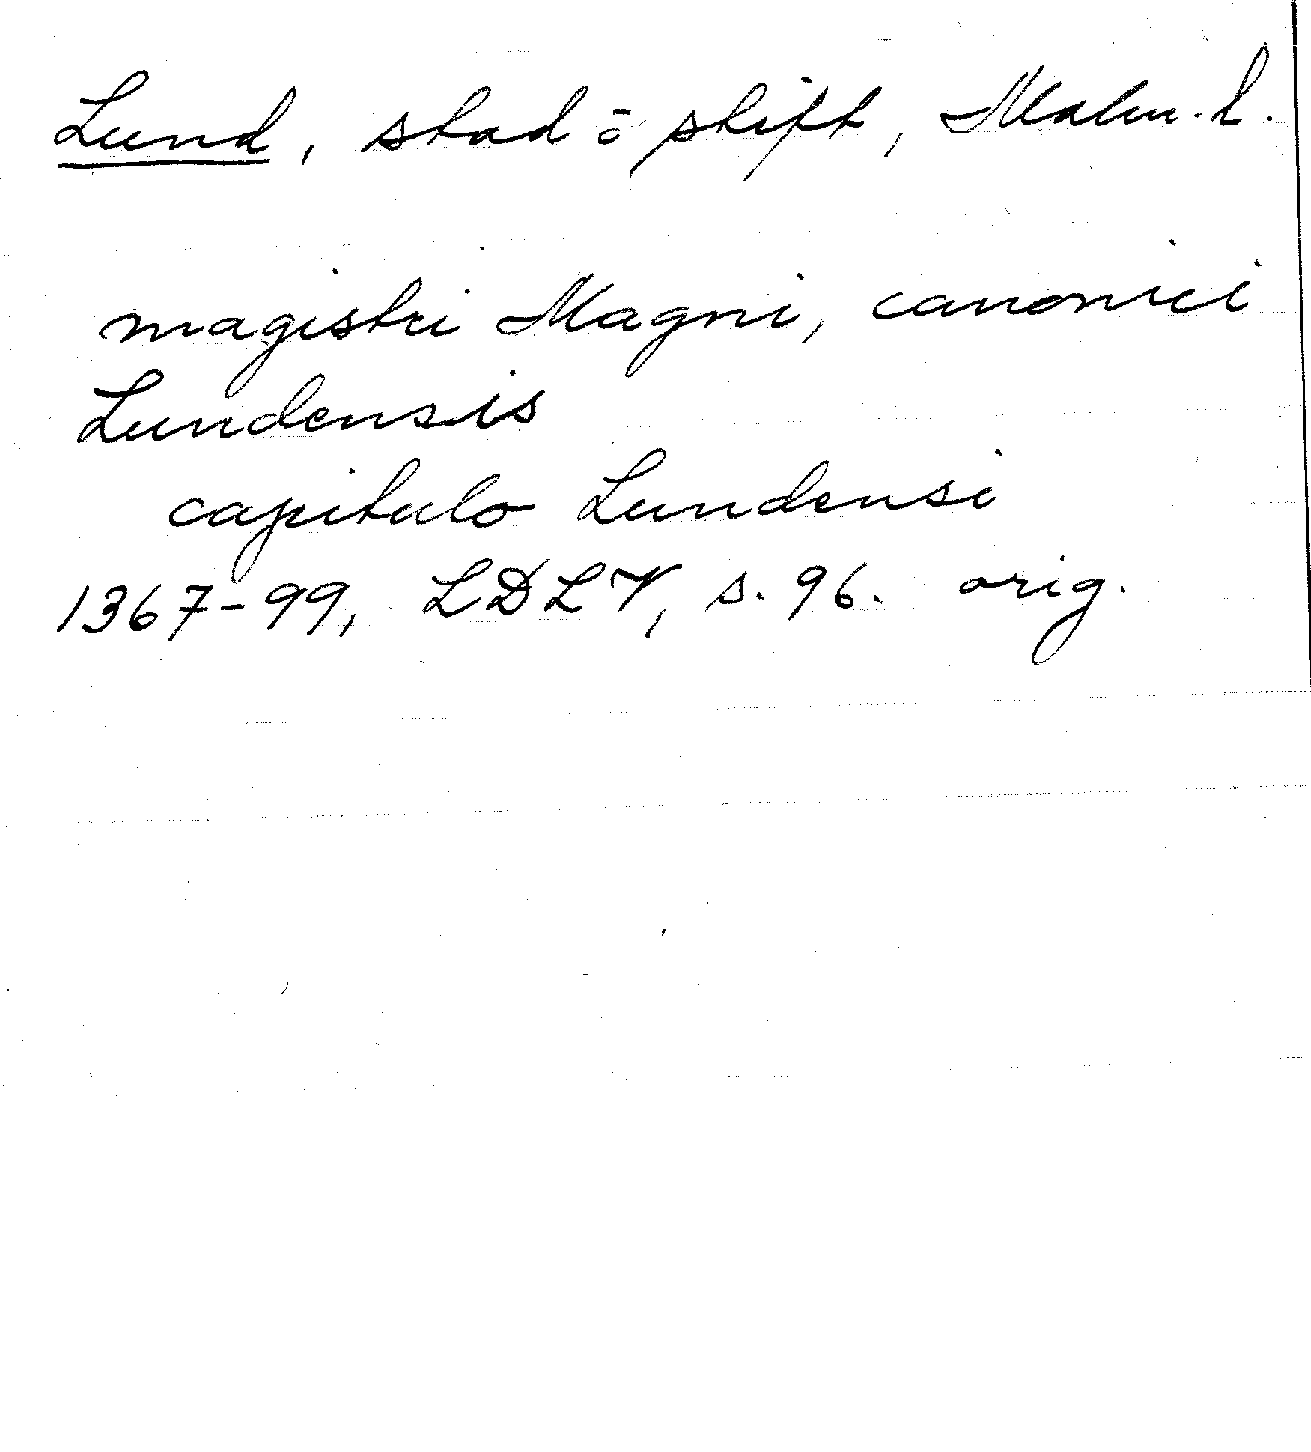 Lund, stad o skift, Malm. l.
magistri Magni, canonici
Lundensis
capitulo Lundensi
1367-99, LDLV, s. 96. orig.